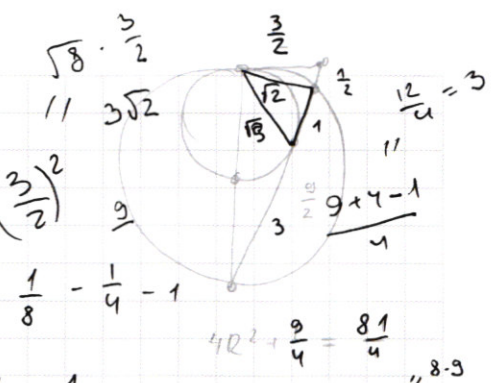 √8 · 3/2
3/2
1/2
12/4 = 3
" 3√2
√2
√3
1
"
(3/2)²
9
9/2
9+4-1/4
3
1/8 - 1/4 - 1
4R² + 9/4 = 81/4
" 8·9